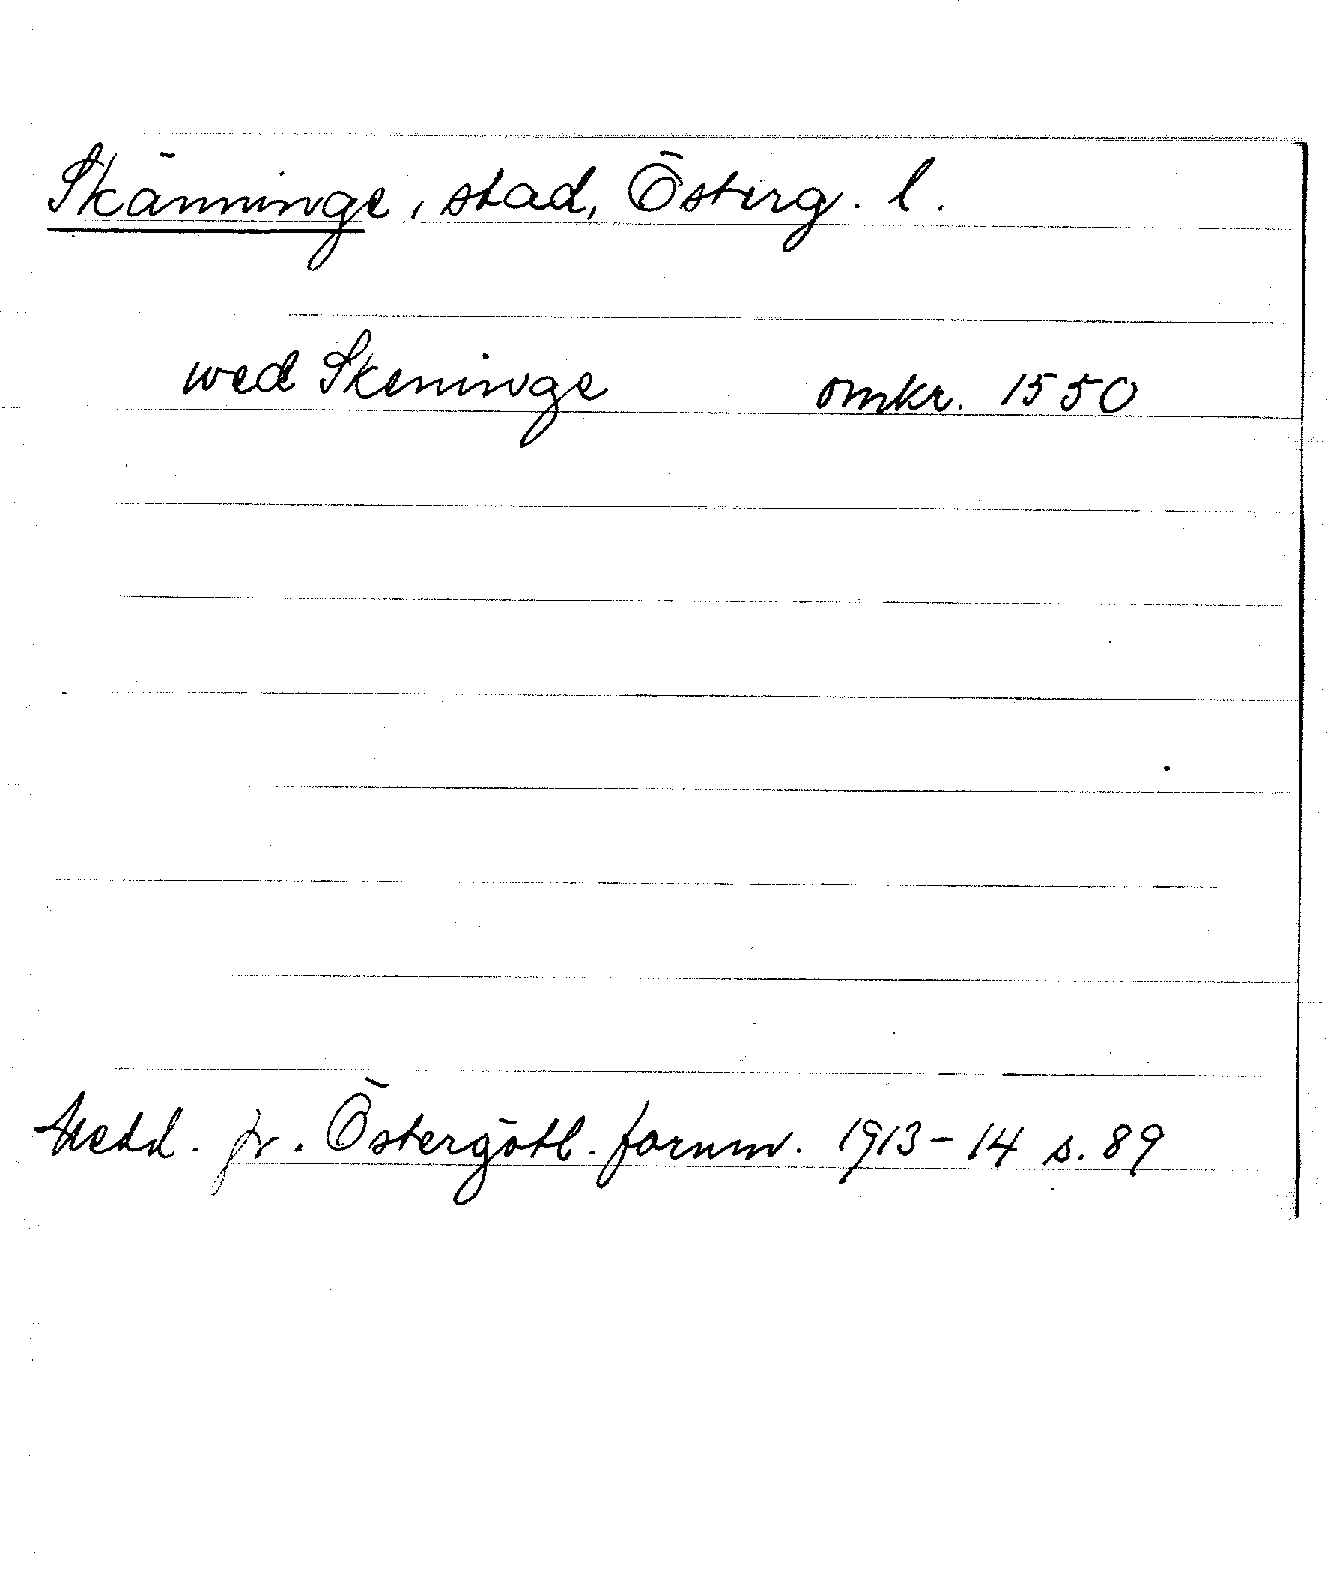 Skänninge, stad, Österg. l.
wed Skeninge omkr. 1550
Medd. fr. Östergötl. fornm. 1913-14 s. 89